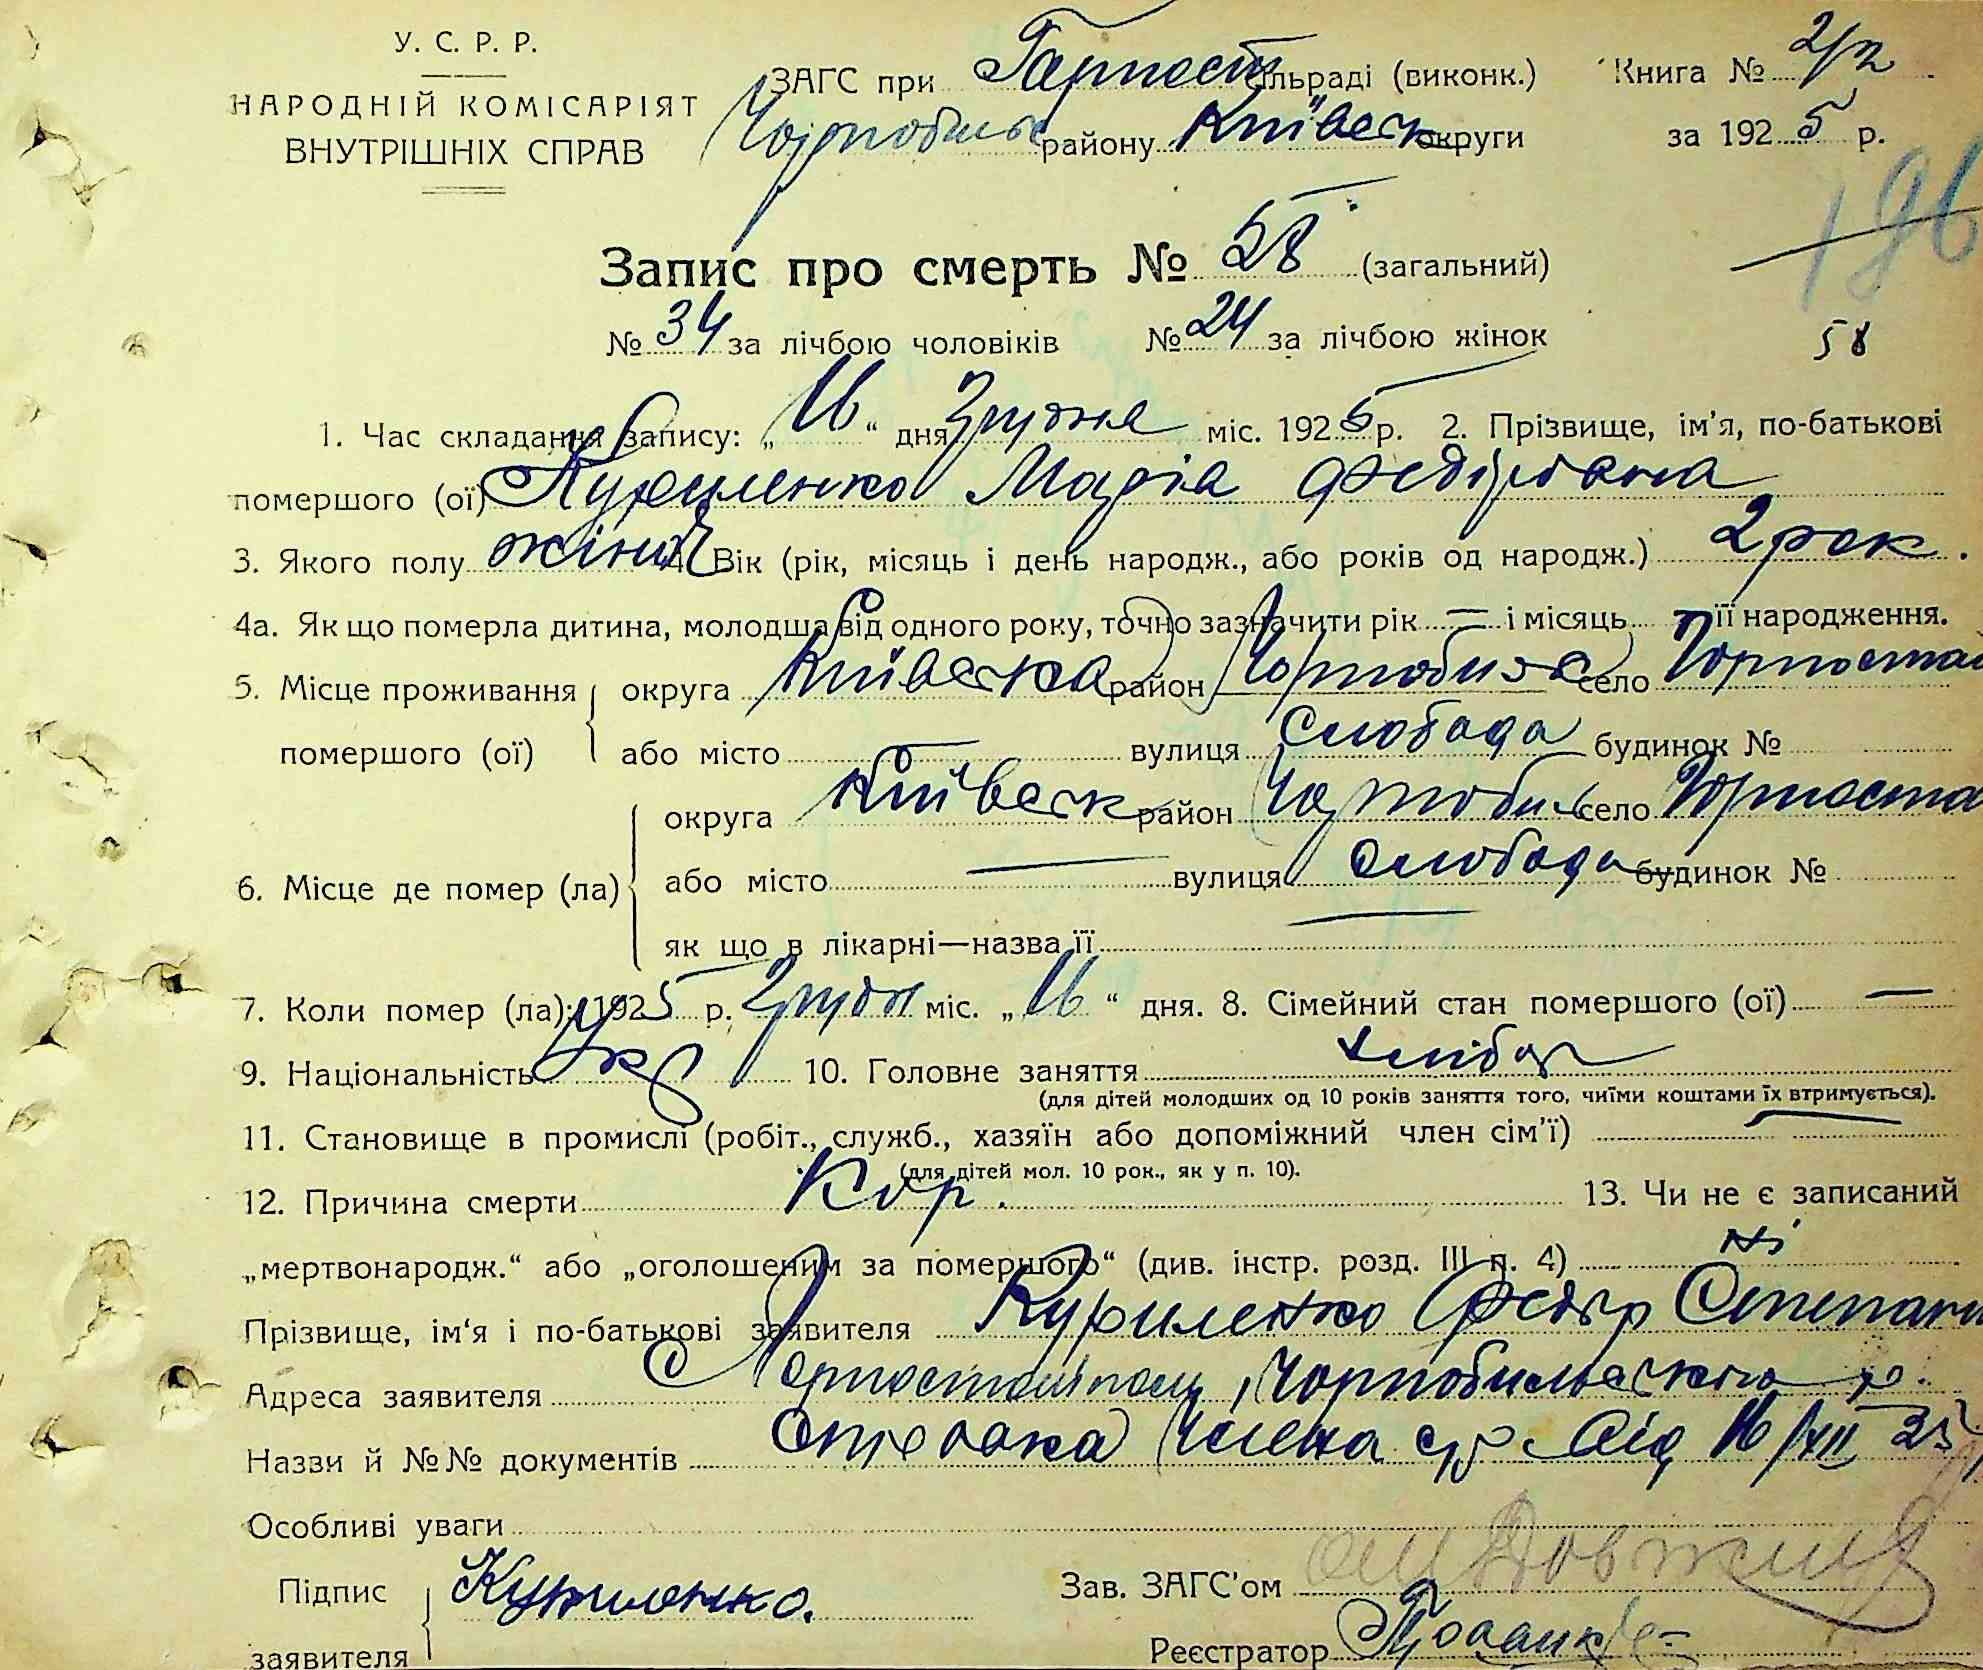 У. С. Р. Р.
НАРОДНІЙ КОМІСАРІЯТ
ВНУТРІШНІХ СПРАВ
ЗАГС при Горност сільраді (виконк.) Книга № 2/2
Чорнобильс району Київськ округи за 1925 р.
196
Запис про смерть № 58 (загальний)
№ 34 за лічбою чоловіків № 24 за лічбою жінок 58
1. Час складання запису: „16“ дня Грудня міс. 1925 р. 2. Прізвище, ім'я, по-батькові
помершого (ої) Куриленко Марія Федіровна
3. Якого полу жіноч 4. Вік (рік, місяць і день народж., або років од народж.) 2 рок.
4а. Як що померла дитина, молодша від одного року, точно зазначити рік — і місяць — її народження.
5. Місце проживання помершого (ої) округа Київська район Чорнобильс село Горностай
або місто — вулиця Слобода будинок №
6. Місце де помер (ла) округа Київськ район Чорнобильс село Горноста
або місто — вулиця Слобода будинок №
як що в лікарні—назва її —
7. Коли помер (ла): 1925 р. Грудн міс. „16“ дня. 8. Сімейний стан помершого (ої) —
9. Національність Укр 10. Головне заняття хлібор
(для дітей молодших од 10 років заняття того, чиїми коштами їх втримується).
11. Становище в промислі (робіт., служб., хазяїн або допоміжний член сім'ї) —
(для дітей мол. 10 рок., як у п. 10).
12. Причина смерти Кор. 13. Чи не є записаний
„мертвонародж.“ або „оголошеним за помершого“ (див. інстр. розд. III п. 4) ні
Прізвище, ім'я і по-батькові заявителя Куриленко Федір Степано
Адреса заявителя с Горностайполь, Чорнобильського р.
Назви й №№ документів Справка Члена с/р від 16/XII 25
Особливі уваги
Підпис заявителя Куриленко.
Зав. ЗАГС'ом
Реєстратор